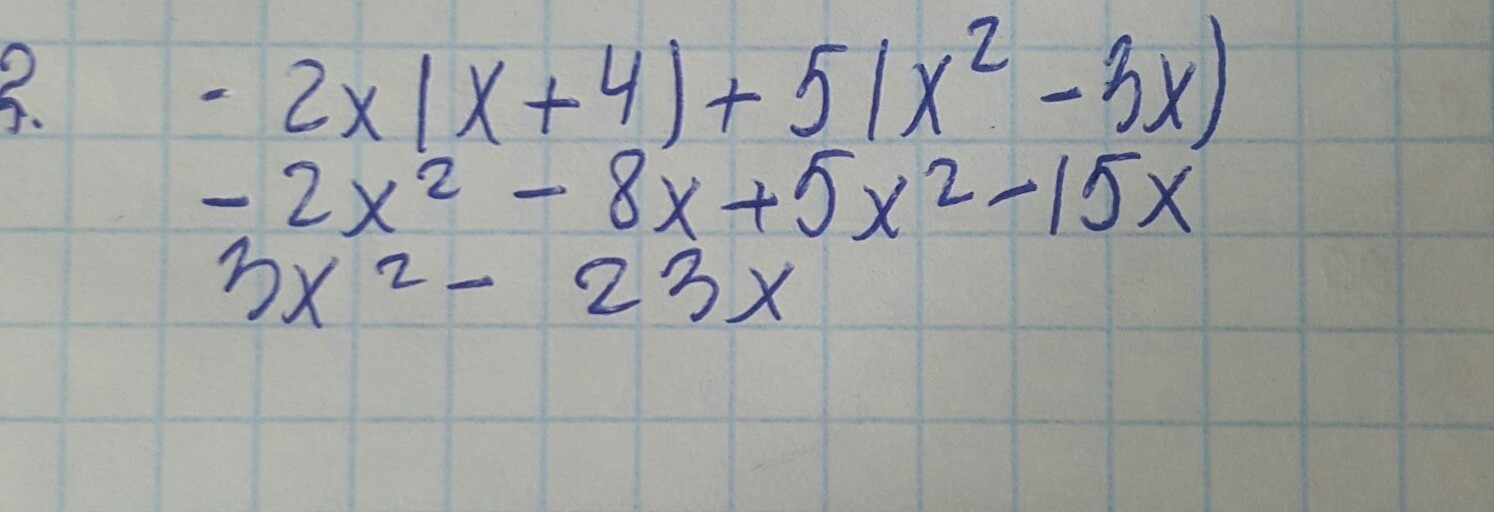 2. - 2x(x+4)+5(x² -3x)
-2x² - 8x+5x²-15x
3x² - 23x